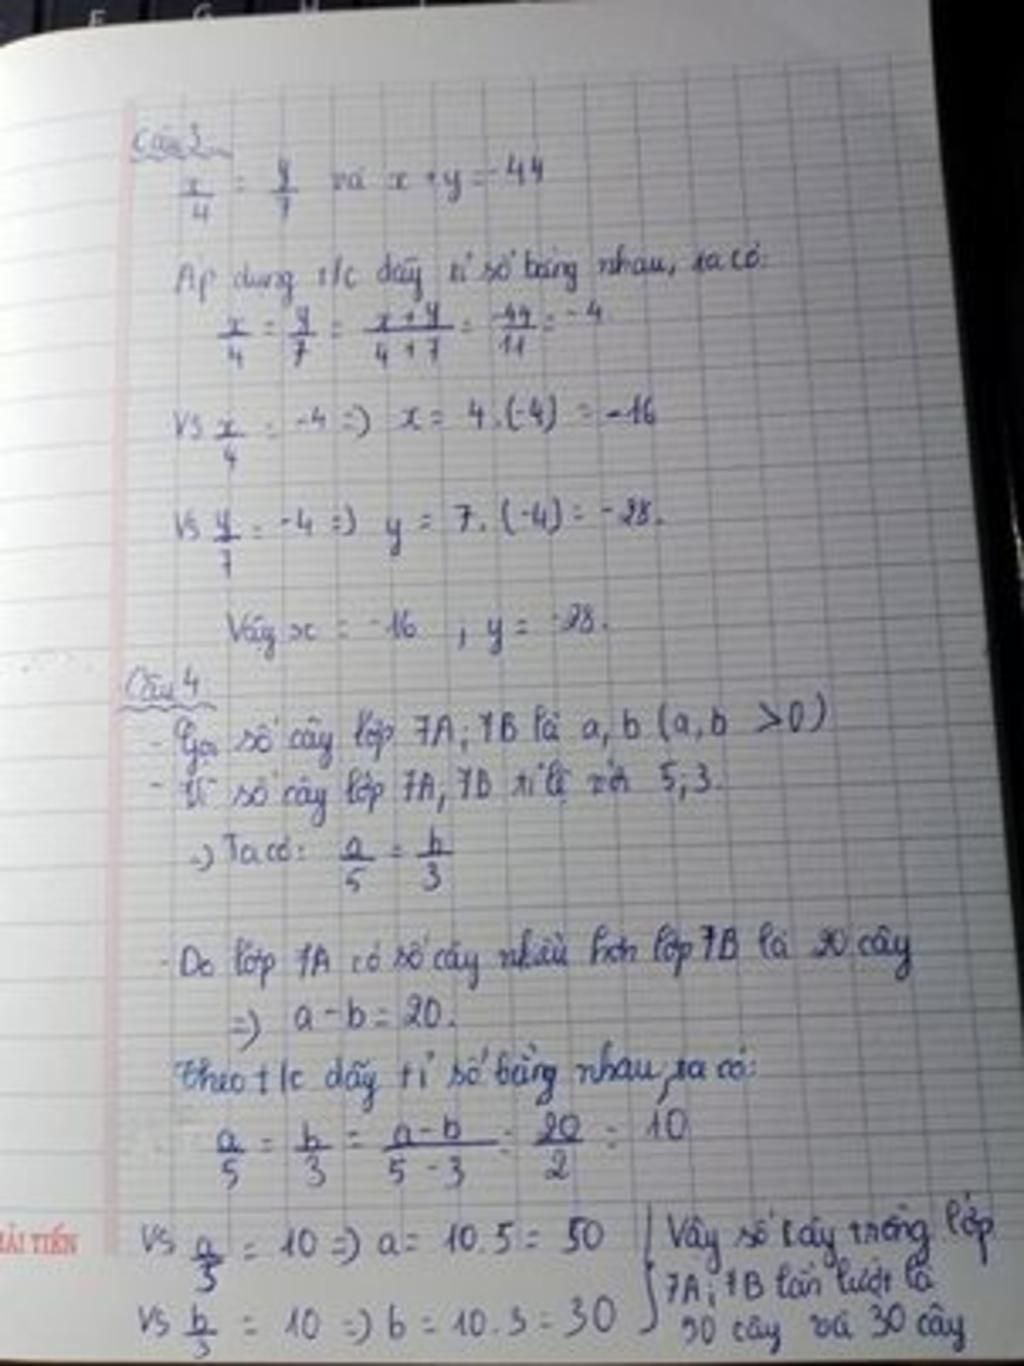 Câu 3
x/4 = y/7 và x + y = -44
Áp dụng t/c dãy tỉ số bằng nhau, ta có:
x/4 = y/7 = x+y/4+7 = -44/11 = -4
VS x/4 = -4 => x = 4.(-4) = -16
VS y/7 = -4 => y = 7.(-4) = -28.
Vậy x = -16 , y = -28.
Câu 4
- Gọi số cây lớp 7A; 7B là a, b (a, b > 0)
- Vì số cây lớp 7A, 7B tỉ lệ với 5, 3.
=> Ta có: a/5 = b/3
- Do lớp 7A có số cây nhiều hơn lớp 7B là 20 cây
=> a - b = 20.
Theo t/c dãy tỉ số bằng nhau, ta có:
a/5 = b/3 = a-b/5-3 = 20/2 = 10
VS a/5 = 10 => a = 10.5 = 50
VS b/3 = 10 => b = 10.3 = 30
Vậy số cây trồng lớp
7A; 7B lần lượt là
50 cây và 30 cây
HẢI TIẾN